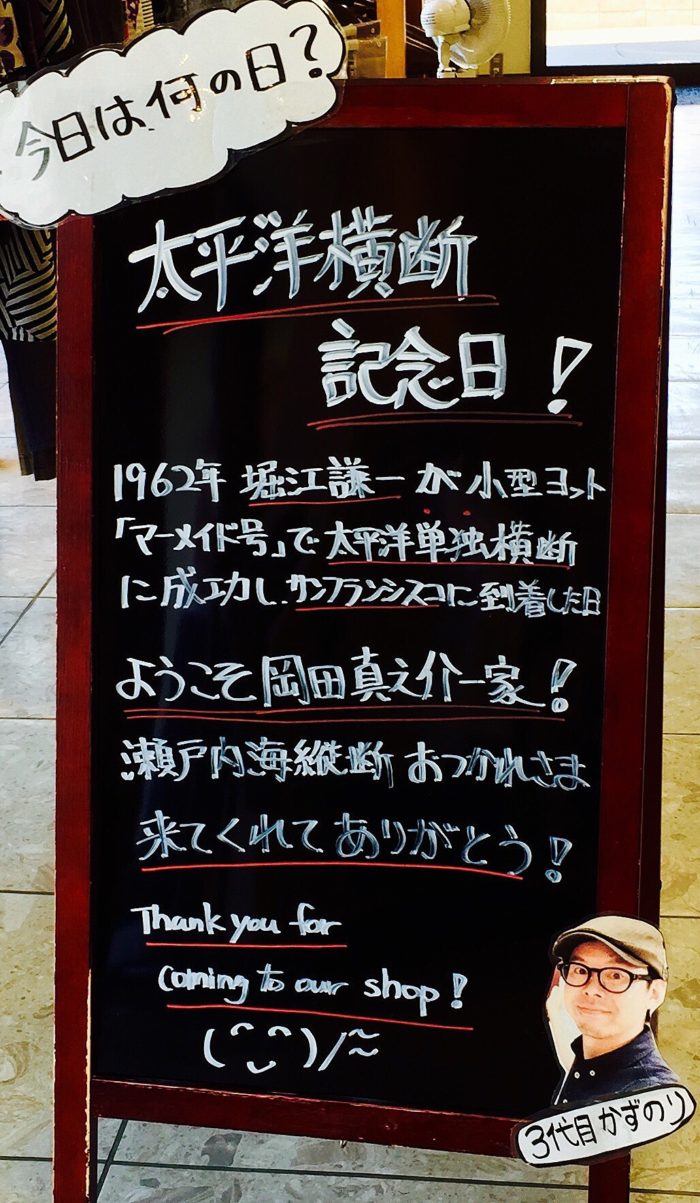 今日は何の日?
太平洋横断
記念日!
1962年 堀江謙一が小型ヨット
「マーメイド号」で太平洋単独横断
に成功し、サンフランシスコに到着した日
ようこそ岡田真之介一家!
瀬戸内海縦断 おつかれさま
来てくれてありがとう!
Thank you for
coming to our shop!
(^‿^)/~~
3代目かずのり